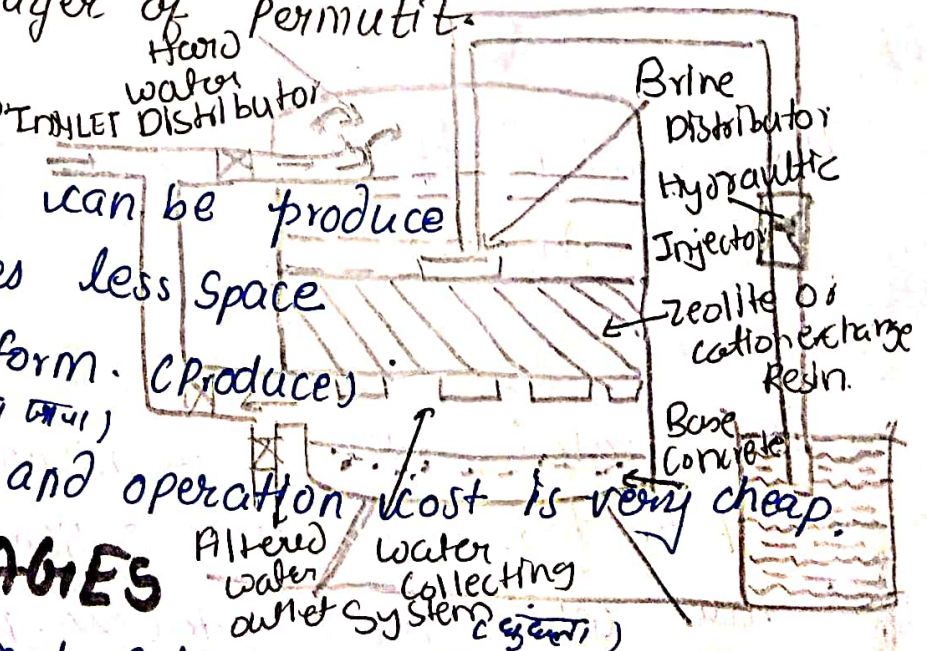 ayer of Permutit.
Hard
water
INHLET Distributor
Brine
Distributor
Hydraultic
Injector
can be produce
es less Space
zeolite or
cation exchange
Resin.
form. (Produce)
Base
Concrete
and operation cost is very cheap.
AGIES
Altered
water
outlet
water
collecting
System